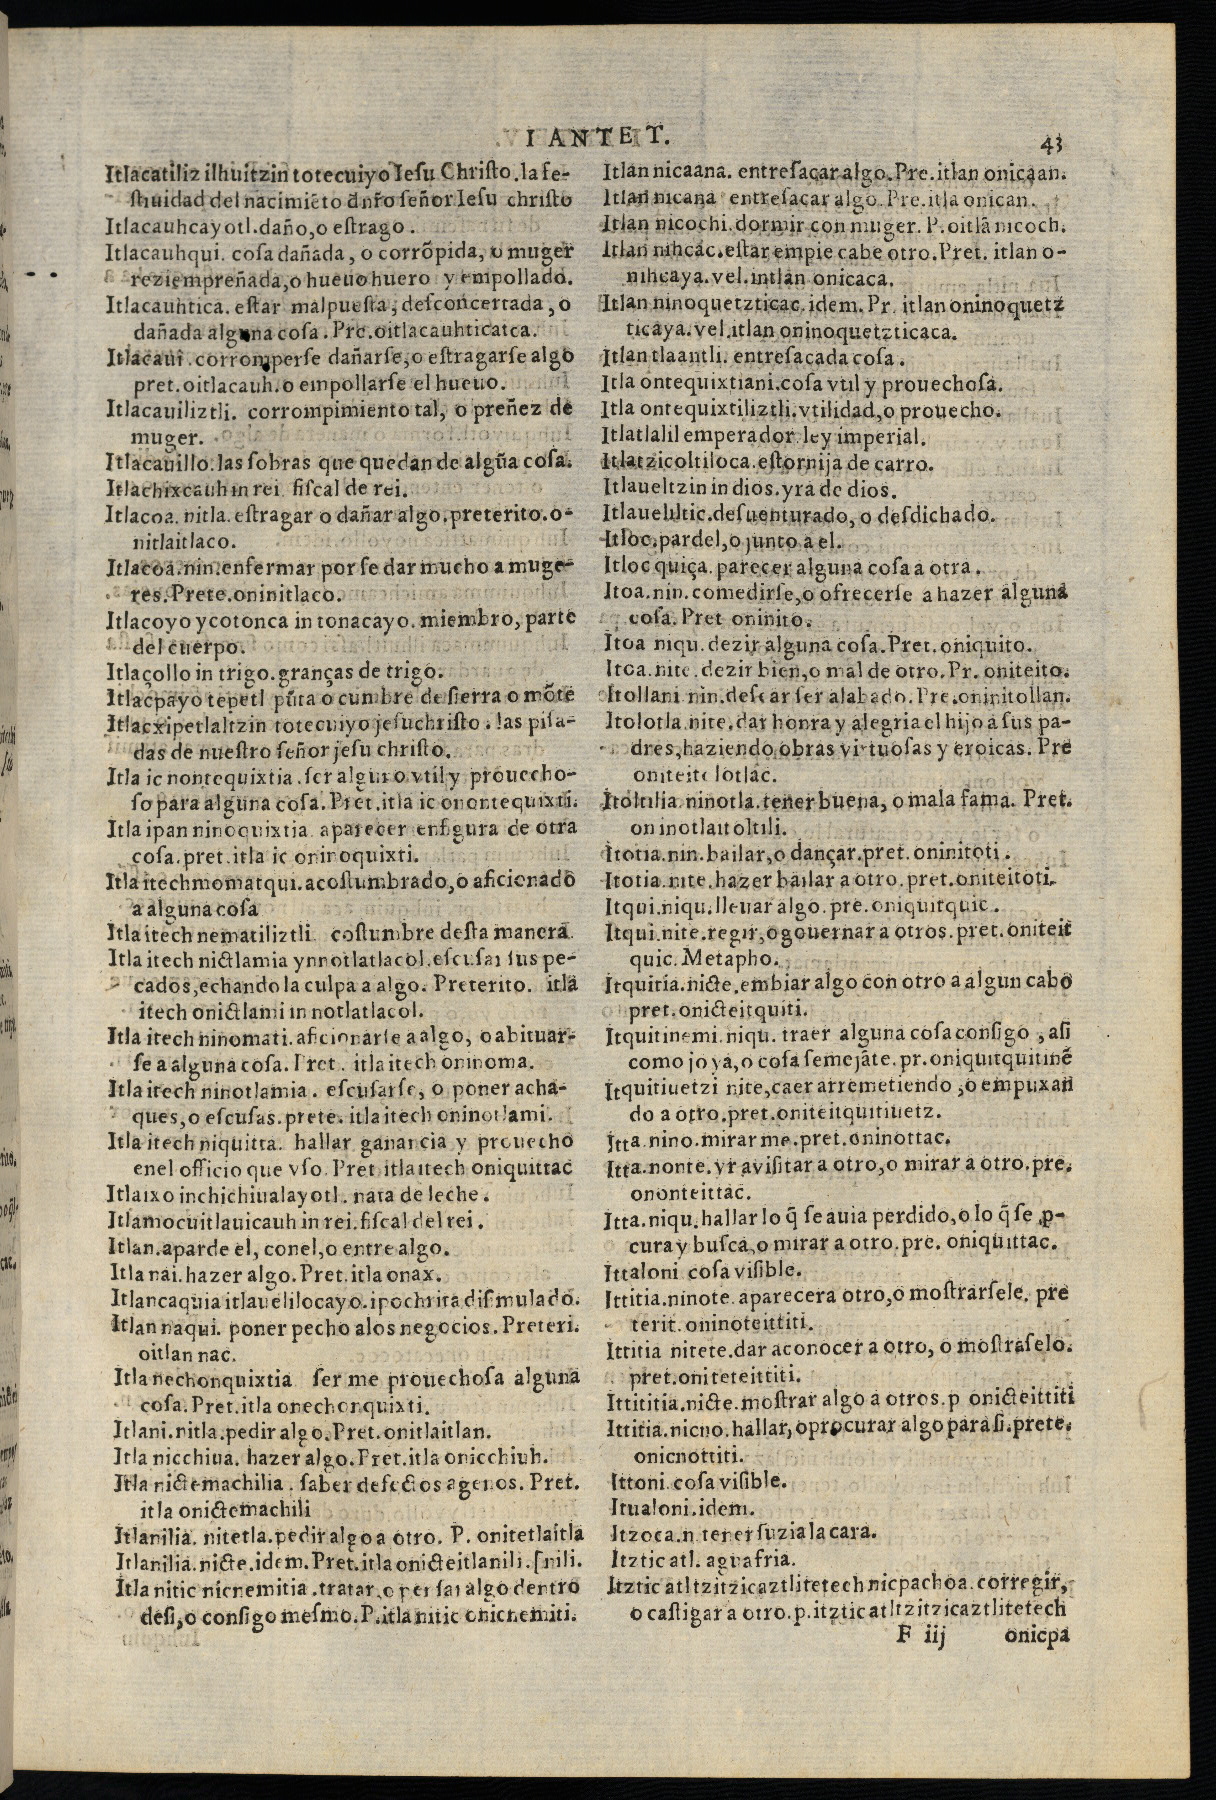 I ANTE T.
43
Itlacatiliz ilhuitzin totecuiyo Iesu Christo. la fe-
stiuidad del nacimiẽto d̃ nr̃o señor Iesu christo
Itlacauhcayotl. daño, o estrago.
Itlacauhqui. cosa dañada, o corrõpida, o muger
reziempreñada, o hueuo huero y empollado.
Itlacauhtica. estar malpuesta, desconcertada, o
dañada alguna cosa. Pre. oitlacauhticatca.
Itlacaui. corromperse dañarse, o estragarse algo
pret. oitlacauh. o empollarse el hueuo.
Itlacauiliztli. corrompimiento tal, o preñez de
muger.
Itlacauillo. las sobras que quedan de algũa cosa.
Itlachixcauh in rei fiscal de rei.
Itlacoa. nitla. estragar o dañar algo. preterito. o-
nitlaitlaco.
Itlacoa. nin. enfermar por se dar mucho a muge-
res. Prete. oninitlaco.
Itlacoyo ycotonca in tonacayo. miembro, parte
del cuerpo.
Itlaçollo in trigo. granças de trigo.
Itlacpayo tepetl pũta o cumbre de sierra o mõte
Itlacxipetlaltzin totecuiyo jesuchristo. las pisa-
das de nuestro señor jesu christo.
Itla ic nontequixtia. ser alguro vtil y prouecho-
so para alguna cosa. Pret. itla ic onontequixti.
Itla ipan ninoquixtia aparecer enfigura de otra
cosa. pret. itla ic oninoquixti.
Itla itechmomatqui. acostumbrado, o aficionado
a alguna cosa
Itla itech nematiliztli. costumbre desta manera.
Itla itech nictlamia ynnotlatlacol. escusar sus pe-
cados, echando la culpa a algo. Preterito. itla
itech onictlami in notlatlacol.
Itla itech ninomati. aficionarse a algo, o abituar-
se a alguna cosa. Pret. itla itech oninoma.
Itla itech ninotlamia. escusarse, o poner acha-
ques, o escusas. prete. itla itech oninotlami.
Itla itech niquitta. hallar ganancia y prouecho
enel officio que vso. Pret itla itech oniquittac
Itlaixo inchichiualayotl. nata de leche.
Itlamocuitlauicauh in rei. fiscal del rei.
Itlan. aparde el, conel, o entre algo.
Itla nai. hazer algo. Pret. itla onax.
Itlancaquia itlauelilocayo. ipochrita disimulado.
Itlan naqui. poner pecho alos negocios. Preteri.
oitlan nac.
Itla nechonquixtia ser me prouechosa alguna
cosa. Pret. itla onechonquixti.
Itlani. nitla. pedir algo. Pret. onitlaitlan.
Itla nicchiua. hazer algo. Pret. itla onicchiuh.
Itla nictemachilia. saber defectos agenos. Pret.
itla onictemachili
Itlanilia. nitetla. pedir algo a otro. P. onitetlaitla
Itlanilia. nicte. idem. Pret. itla onicteitlanili. [nili.
Itla nitic nicnemitia. tratar, o pensar algo dentro
desi, o consigo mesmo. P. itla nitic onicnemiti.
Itlan nicaana. entresacar algo. Pre. itlan onicaan.
Itlan nicana entresacar algo. Pre. itlã onican.
Itlan nicochi. dormir con muger. P. oitlã nicoch.
Itlan nihcac. estar empie cabe otro. Pret. itlan o-
nihcaya. vel. intlan onicaca.
Itlan ninoquetzticac. idem. Pr. itlan oninoquetz
ticaya. vel. itlan oninoquetzticaca.
Itlan tlaantli. entresacada cosa.
Itla ontequixtiani. cosa vtil y prouechosa.
Itla ontequixtiliztli. vtilidad, o prouecho.
Itlatlalil emperador. ley imperial.
Itlatzicoltiloca. estornija de carro.
Itlaueltzin in dios. yra de dios.
Itlaueliltic. desuenturado, o desdichado.
Itloc. pardel, o junto a el.
Itloc quiça. parecer alguna cosa a otra.
Itoa. nin. comedirse, o ofrecerse a hazer alguna
cosa. Pret oninito.
Itoa niqu. dezir alguna cosa. Pret. oniquito.
Itoa. nite. dezir bien, o mal de otro. Pr. oniteito.
Itollani nin. desear ser alabado. Pre. oninitollan.
Itolotla. nite. dar honra y alegria el hijo a sus pa-
dres, haziendo obras virtuosas y eroicas. Pre
oniteitolotlac.
Itoltilia. ninotla. tener buena, o mala fama. Pret.
oninotlaitoltili.
Itotia. nin. bailar, o dançar. pret. oninitoti.
Itotia. nite. hazer bailar a otro. pret. oniteitoti.
Itqui. niqu. lleuar algo. pre. oniquitquic.
Itqui. nite. regir, o gouernar a otros. pret. oniteit
quic. Metapho.
Itquitia. nicte. embiar algo con otro a algun cabo
pret. onicteitquiti.
Itquitinemi. niqu. traer alguna cosa consigo, asi
como joya, o cosa semejãte. pr. oniquitquitinẽ
Itquitiuetzi nite, caer arremetiendo, o empuxan
do a otro. pret. oniteitquitiuetz.
Itta. nino. mirar me. pret. oninottac.
Itta. nonte. yr a visitar a otro, o mirar a otro. pre.
ononteittac.
Itta. niqu. hallar lo q̃ se auia perdido, o lo q̃ se p-
cura y busca, o mirar a otro. pre. oniquittac.
Ittaloni cosa visible.
Ittitia. ninote. aparecera otro, o mostrarsele. pre
terit. oninoteittiti.
Ittitia nitete. dar a conocer a otro, o mostrãselo.
pret. oniteteittiti.
Ittititia. nicte. mostrar algo a otros. p onicteittiti
Ittitia. nicno. hallar, o procurar algo para si. prete.
onicnottiti.
Ittoni. cosa visible.
Itualoni. idem.
Itzoca. n. tener suzia la cara.
Itztic atl. agua fria.
Itztic atl tzitzicaztli tetech nicpachoa. corregir,
o castigar a otro. p. itztic atl tzitzicaztli tetech
F iij
onicpa